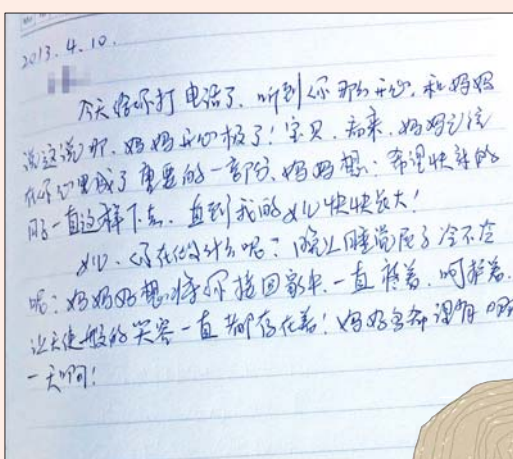 2013.4.10.
今天给你打电话了，听到你那么开心，和妈妈
说这说那，妈妈开心极了！宝贝，看来，妈妈已经
在你心里成了重要的一部份，妈妈想：希望快乐的
一直这样下去，直到我的女儿快快长大！
女儿，你在做什么呢？晚上睡觉屋子冷不冷
呢？妈妈好想将你接回家来，一直 着，呵护着，
让天使般的笑容一直都存在着！妈妈 都
一天啊！